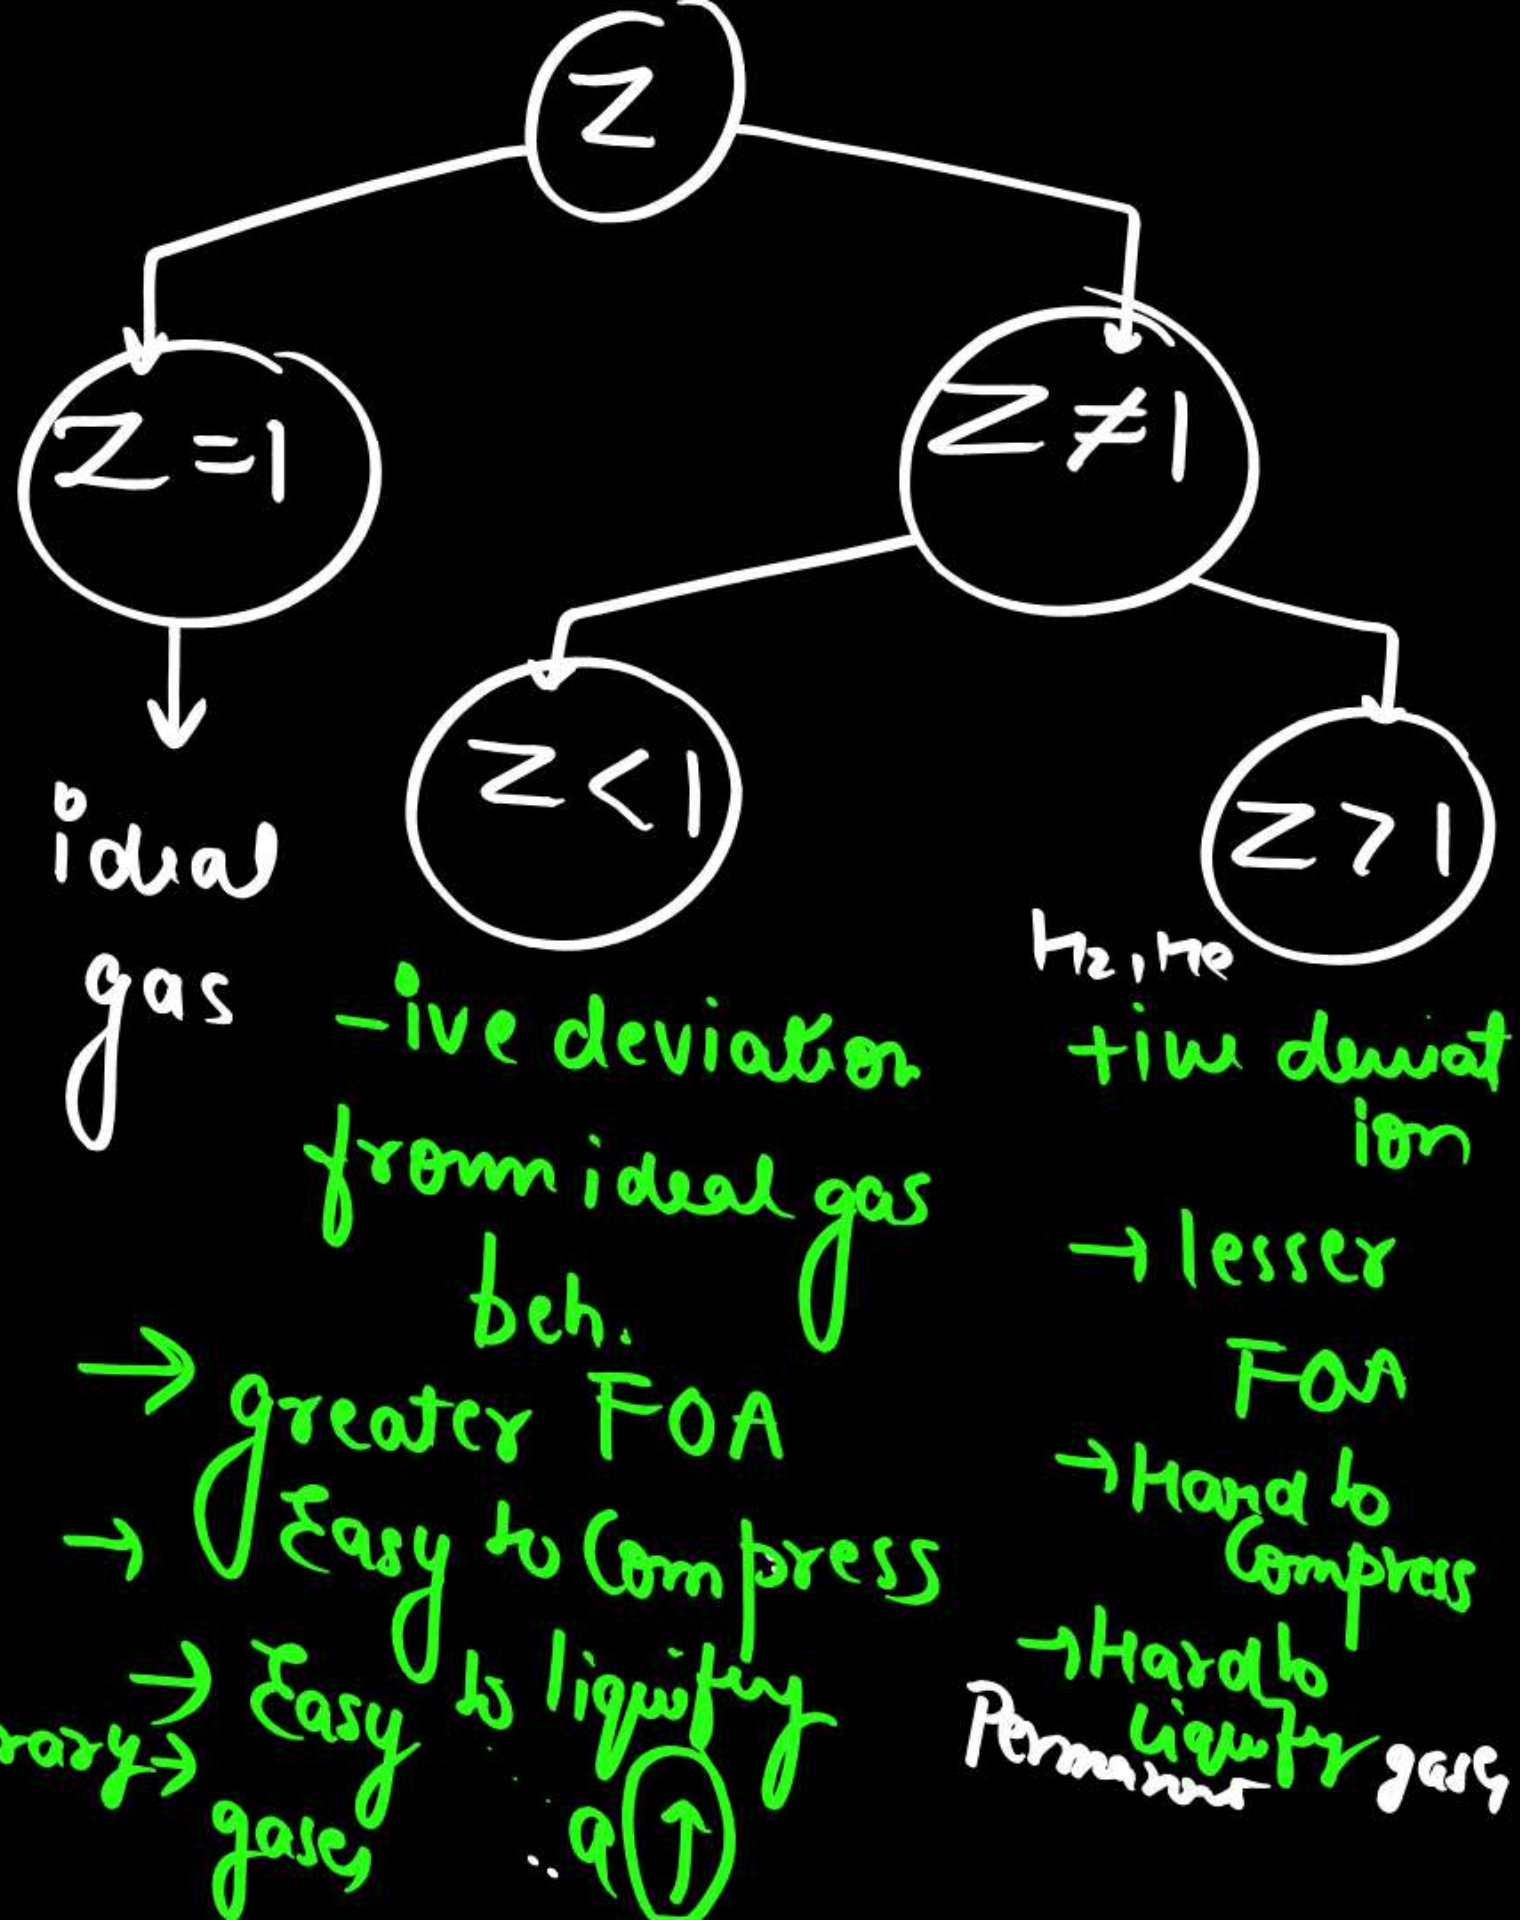 Z
Z=1
Z≠1
Z<1
Z>1
ideal
gas
-ive deviation
from ideal gas
beh.
→ greater FOA
→ Easy to Compress
→ Easy to liquify
rary→
gases
a ↑
H2, He
+ive deviat
ion
→ lesser
FOA
→ Hard to
Compress
→ Hard to
liquify
Permanant gases